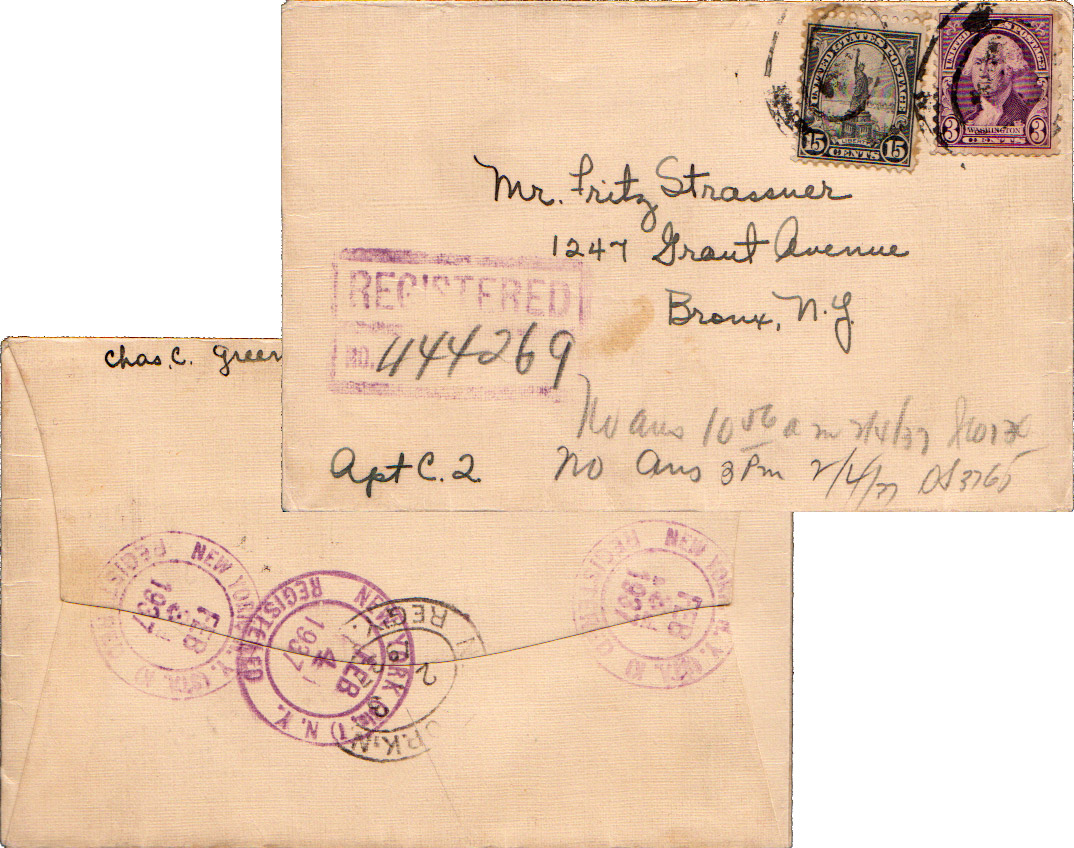 UNITED STATES POSTAGE
LIBERTY
15 15
CENTS
UNITED STATES POSTAGE
WASHINGTON
3 3
CENTS
Mr. Fritz Strassner
1247 Grant Avenue
Bronx, N.Y.
REGISTERED
NO. 444269
No ans 10 56 a m 2/4/37
Apt C. 2
No Ans 3 Pm 2/4/37
Chas. C. Green
NEW YORK, N.Y. (STA. N)
REGISTERED
FEB
3
1937
NEW YORK, N.Y.
REGISTERED
FEB
4
1937
REG'Y.
NEW YORK, N.Y. (STA. N)
REGISTERED
FEB
3
1937